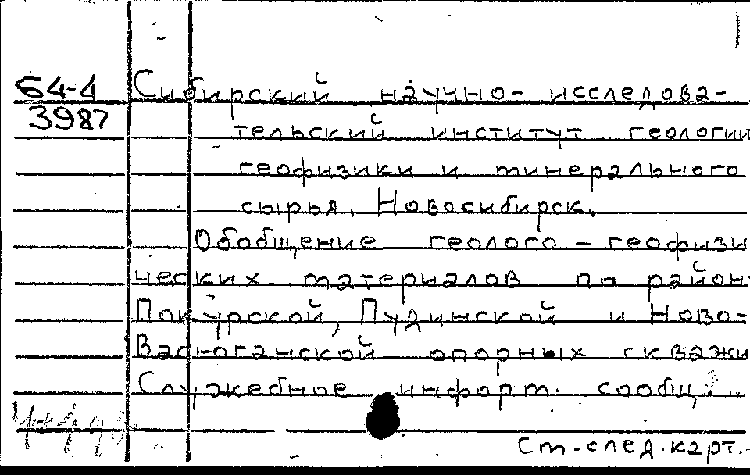 64-4 Сибирский научно-исследова-
3987 тельский институт геологии
геофизики и минерального
сырья. Новосибирск.
Обобщение геолого-геофизи
ческих материалов по район
Покурской, Пудинской и Ново-
Васюганской опорных скважи
Служебное информ. сообщ.
См.след.карт.